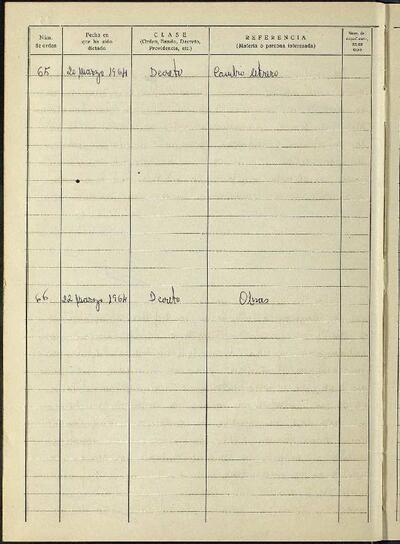 Núm. de orden
Fecha en que ha sido dictado
CLASE
(Orden, Bando, Decreto, Providencia, etc.)
REFERENCIA
(Materia o persona interesada)
65 20 marzo 1964 Decreto Cambio letrero
66 22 marzo 1964 Dcreto Obras